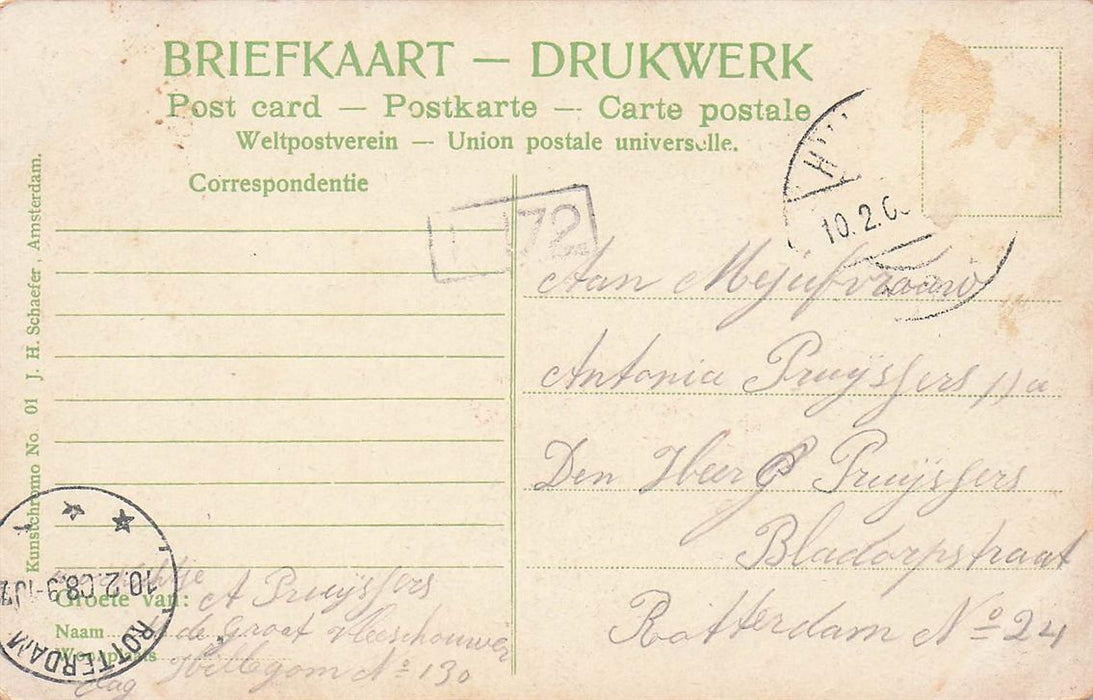 BRIEFKAART — DRUKWERK
Post card — Postkarte — Carte postale
Weltpostverein — Union postale universelle.
Correspondentie
Kunstchromo No. 01 J. H. Schaefer, Amsterdam.
72
10.2.0
Aan Mejufvrouw
Antonia Pruijssers p/a
Den Heer P Pruijssers
Bladorpstraat
Rotterdam No 24
10.2.08 9-10V
ROTTERDAM
Groete van: A Pruijssers
Naam de Groot vleeschouwer
Woonplaats Hillegom No 130
dag